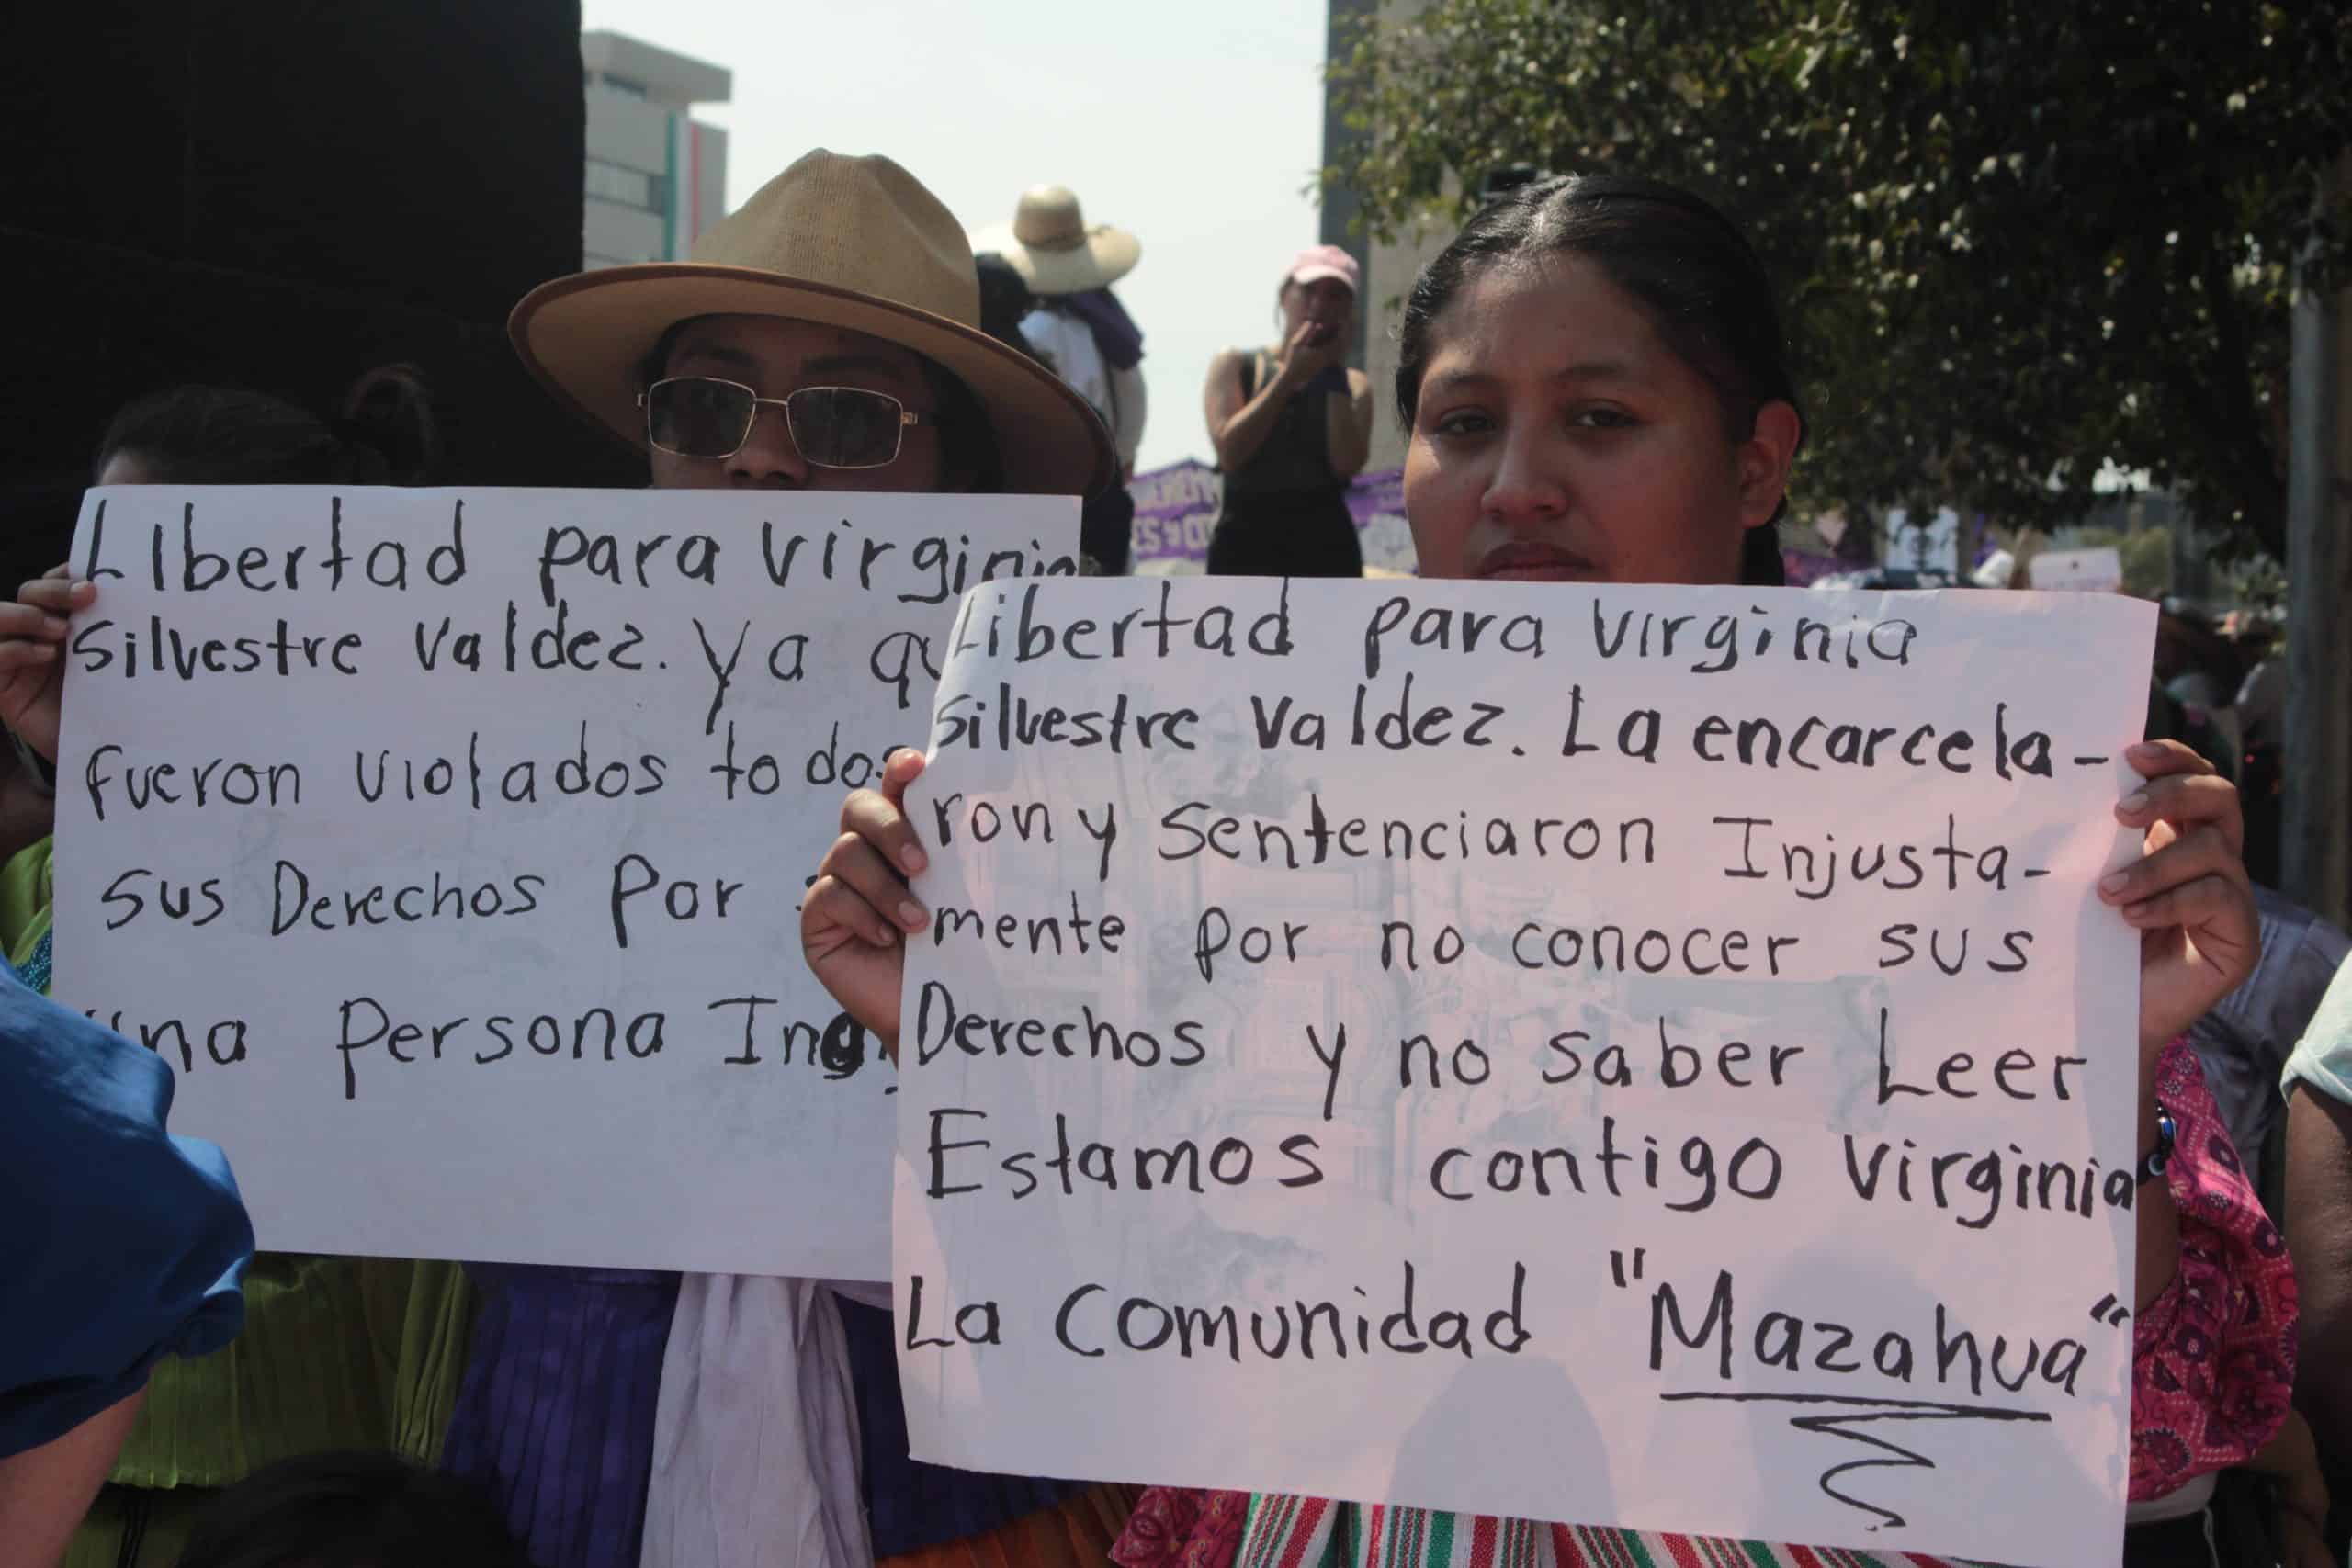 Libertad para virginia
Silvestre Valdez. Ya
fueron violados todos
sus Derechos Por
una Persona
Libertad para virginia
Silvestre Valdez. La encarcela-
ron y Sentenciaron Injusta-
mente Por no conocer sus
Derechos y no saber Leer
Estamos contigo Virginia
La comunidad "Mazahua"